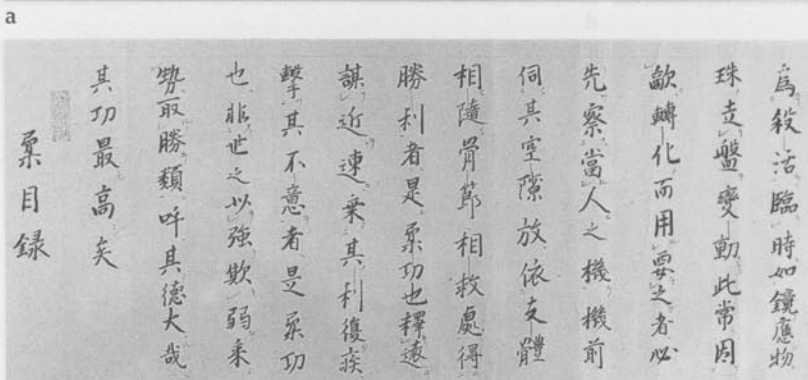 a
爲殺活臨時如鏡應物
珠走盤變動此常因
敵轉化而用要之者必
先察當人之機機前
伺其空隙放依支體
相隨骨節相救處得
勝利者是柔功也釋遠
謀近速乗其利復疾
擊其不意者是柔功
也非世之以強欺弱乗
勢取勝類吁其德大哉
其功最高矣
柔目録